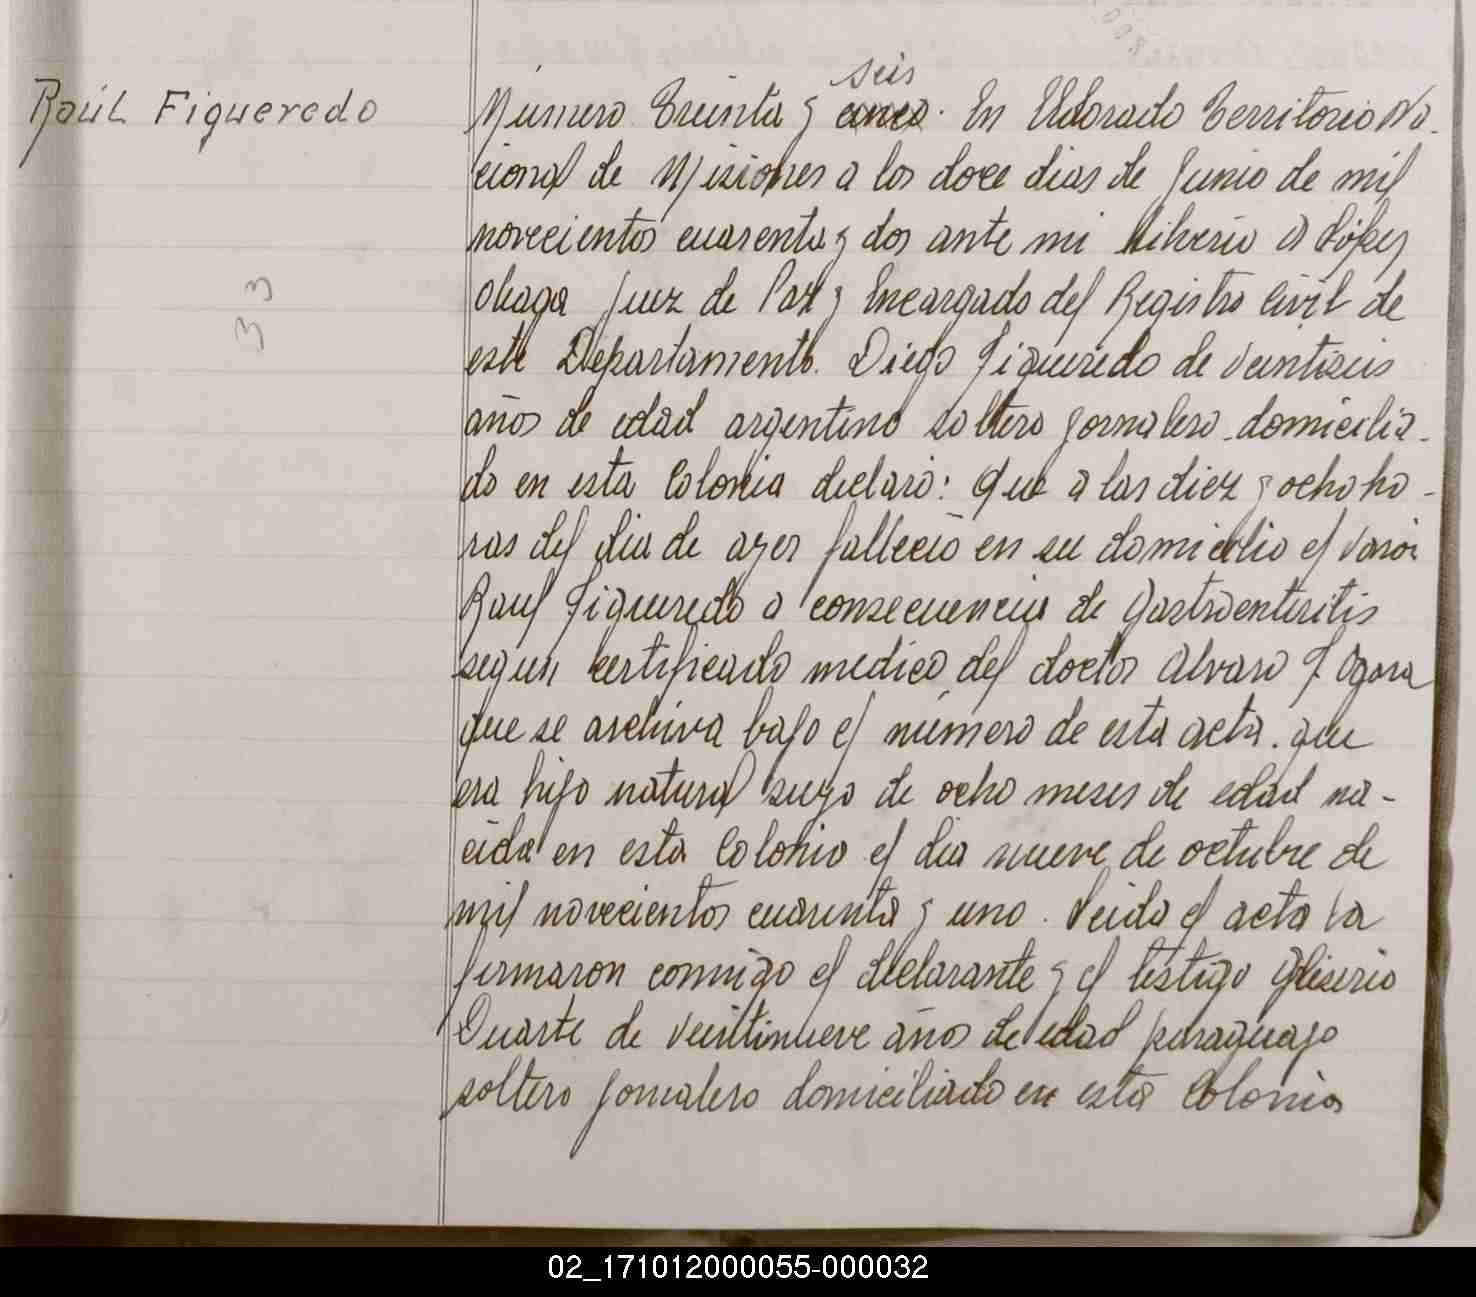 Raúl Figueredo
33
seis
Número Treinta y cinco. En Eldorado Territorio Na-
cional de Misiones a los doce dias de Junio de mil
novecientos cuarenta y dos ante mi A López
Juez de Paz y Encargado del Registro Civil de
este Departamento. Diego Figueredo de veintiseis
años de edad argentino soltero jornalero domicilia-
do en esta Colonia declaró: Que a las diez y ocho ho-
ras del dia de ayer falleció en su domicilio el varon
Raul Figueredo a consecuencia de Gastroenteritis
segun certificado medico del doctor Alvaro
que se archiva bajo el número de esta acta. que
era hijo natural suyo de ocho meses de edad na-
cida en esta Colonia el dia nueve de octubre de
mil novecientos cuarenta y uno. Leida el acta la
firmaron conmigo el declarante y el testigo Gliserio
Duarte de veintinueve años de edad paraguayo
soltero jornalero domiciliado en esta Colonia
02_171012000055-000032